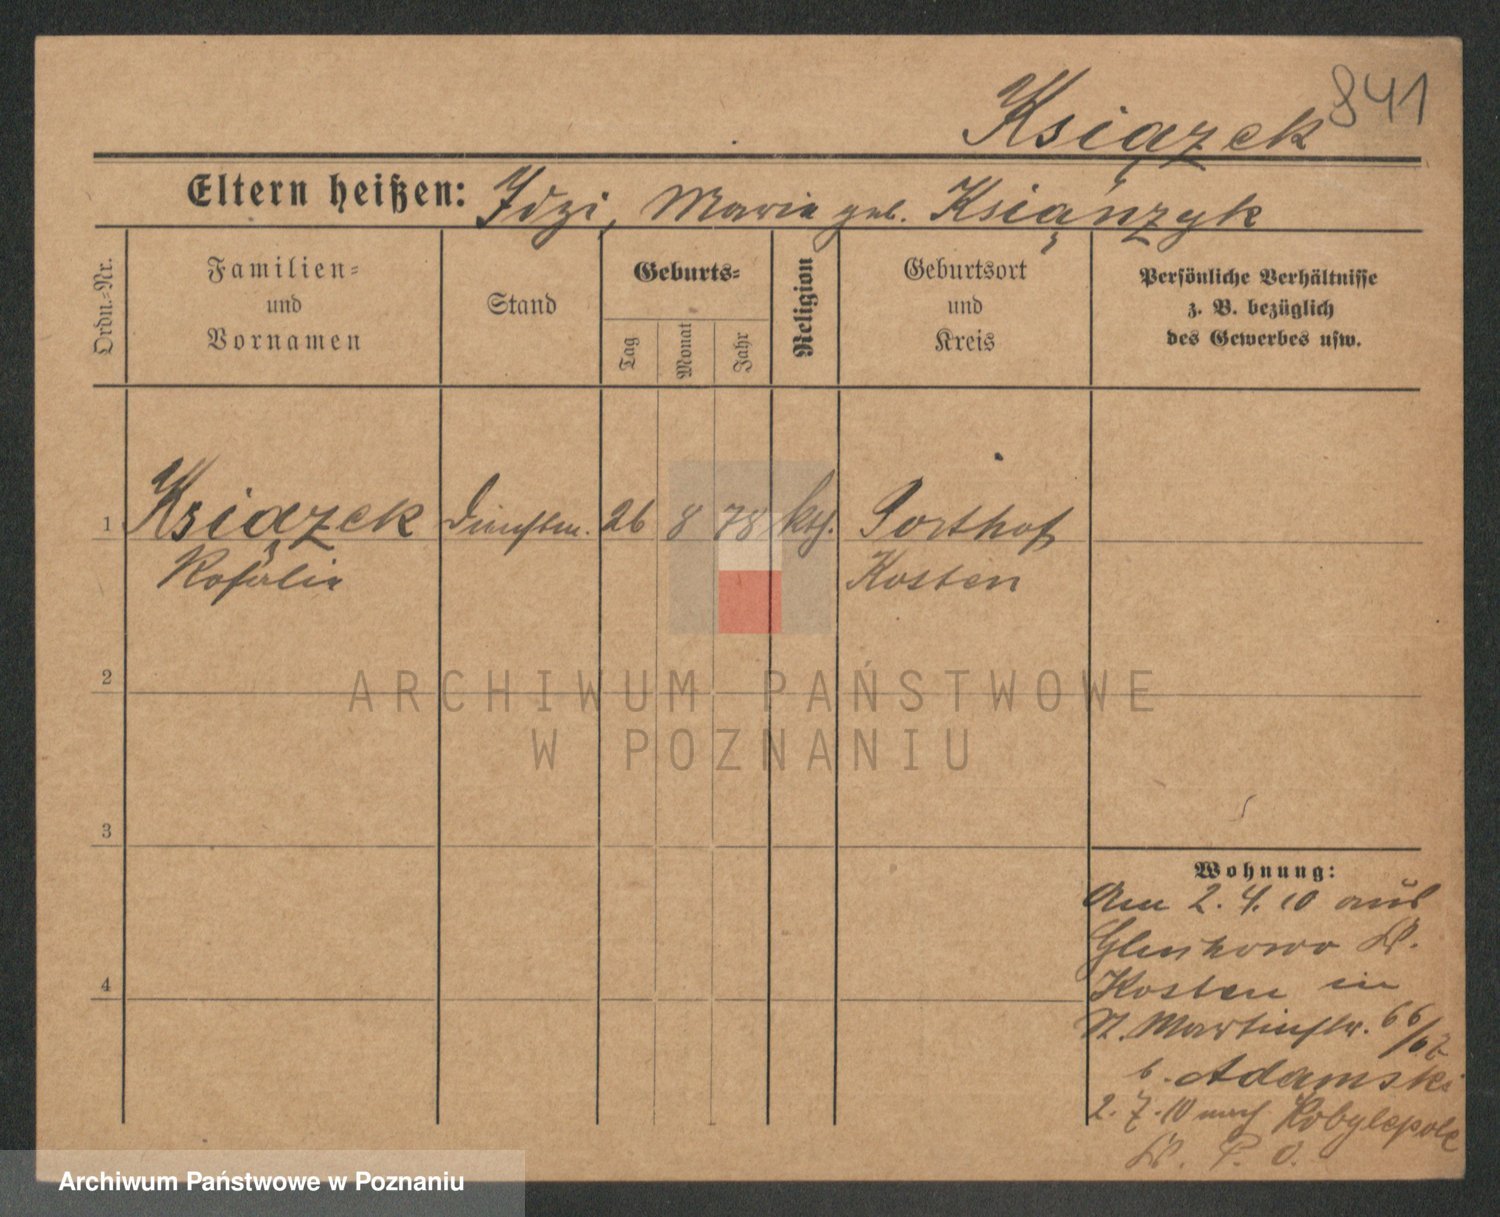 841
Książek
Eltern heißen: Idzi, Maria geb. Książczyk
Ordn.-Nr.
Familien-
und
Vornamen
Stand
Geburts-
Tag
Monat
Jahr
Religion
Geburtsort
und
Kreis
Persönliche Verhältnisse
z. B. bezüglich
des Gewerbes usw.
1 Książek 26 8 78 kth. Porthof
Rosalia Kosten
2
3
4
Wohnung:
Am 2.4.10 aus
Kr.
Kosten in
St. Martinstr. 66/67
b. Adamski
2.7.10 nach Kobylepole
Kr. P. O.
ARCHIWUM PAŃSTWOWE
W POZNANIU
Archiwum Państwowe w Poznaniu